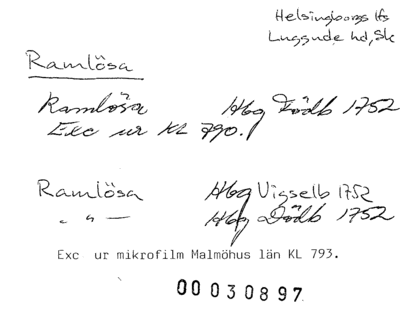 Helsingborgs lfs
Luggude hd, Sk
Ramlösa
Ramlösa Hbg Dödb 1752
Exc ur KL 790.
Ramlösa Hbg Vigselb 1752
- " - Hbg Dödb 1752
Exc ur mikrofilm Malmöhus län KL 793.
00 030897